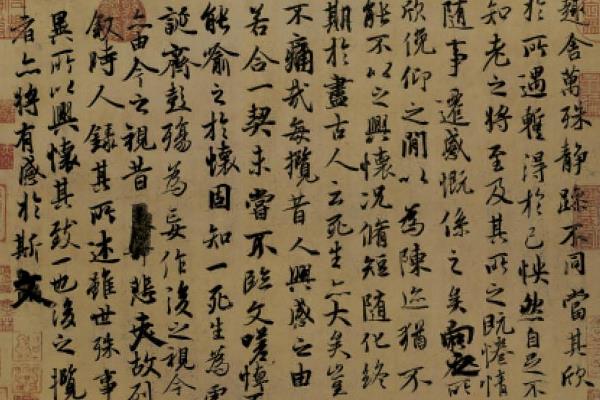 趣舍萬殊静躁不同當其欣
於所遇暫得於己怏然自足不
知老之將至及其所之既惓情
隨事遷感慨係之矣向之所
欣俛仰之閒以為陳迹猶不
能不以之興懷況脩短隨化終
期於盡古人云死生亦大矣豈
不痛哉每攬昔人興感之由
若合一契未嘗不臨文嗟悼不
能喻之於懷固知一死生為虛
誕齊彭殤為妄作後之視今
亦由今之視昔悲夫故列
叙時人錄其所述雖世殊事
異所以興懷其致一也後之攬
者亦將有感於斯文